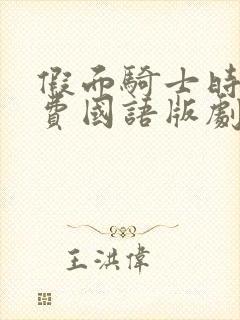 假面騎士時
費國語版劇
王洪偉